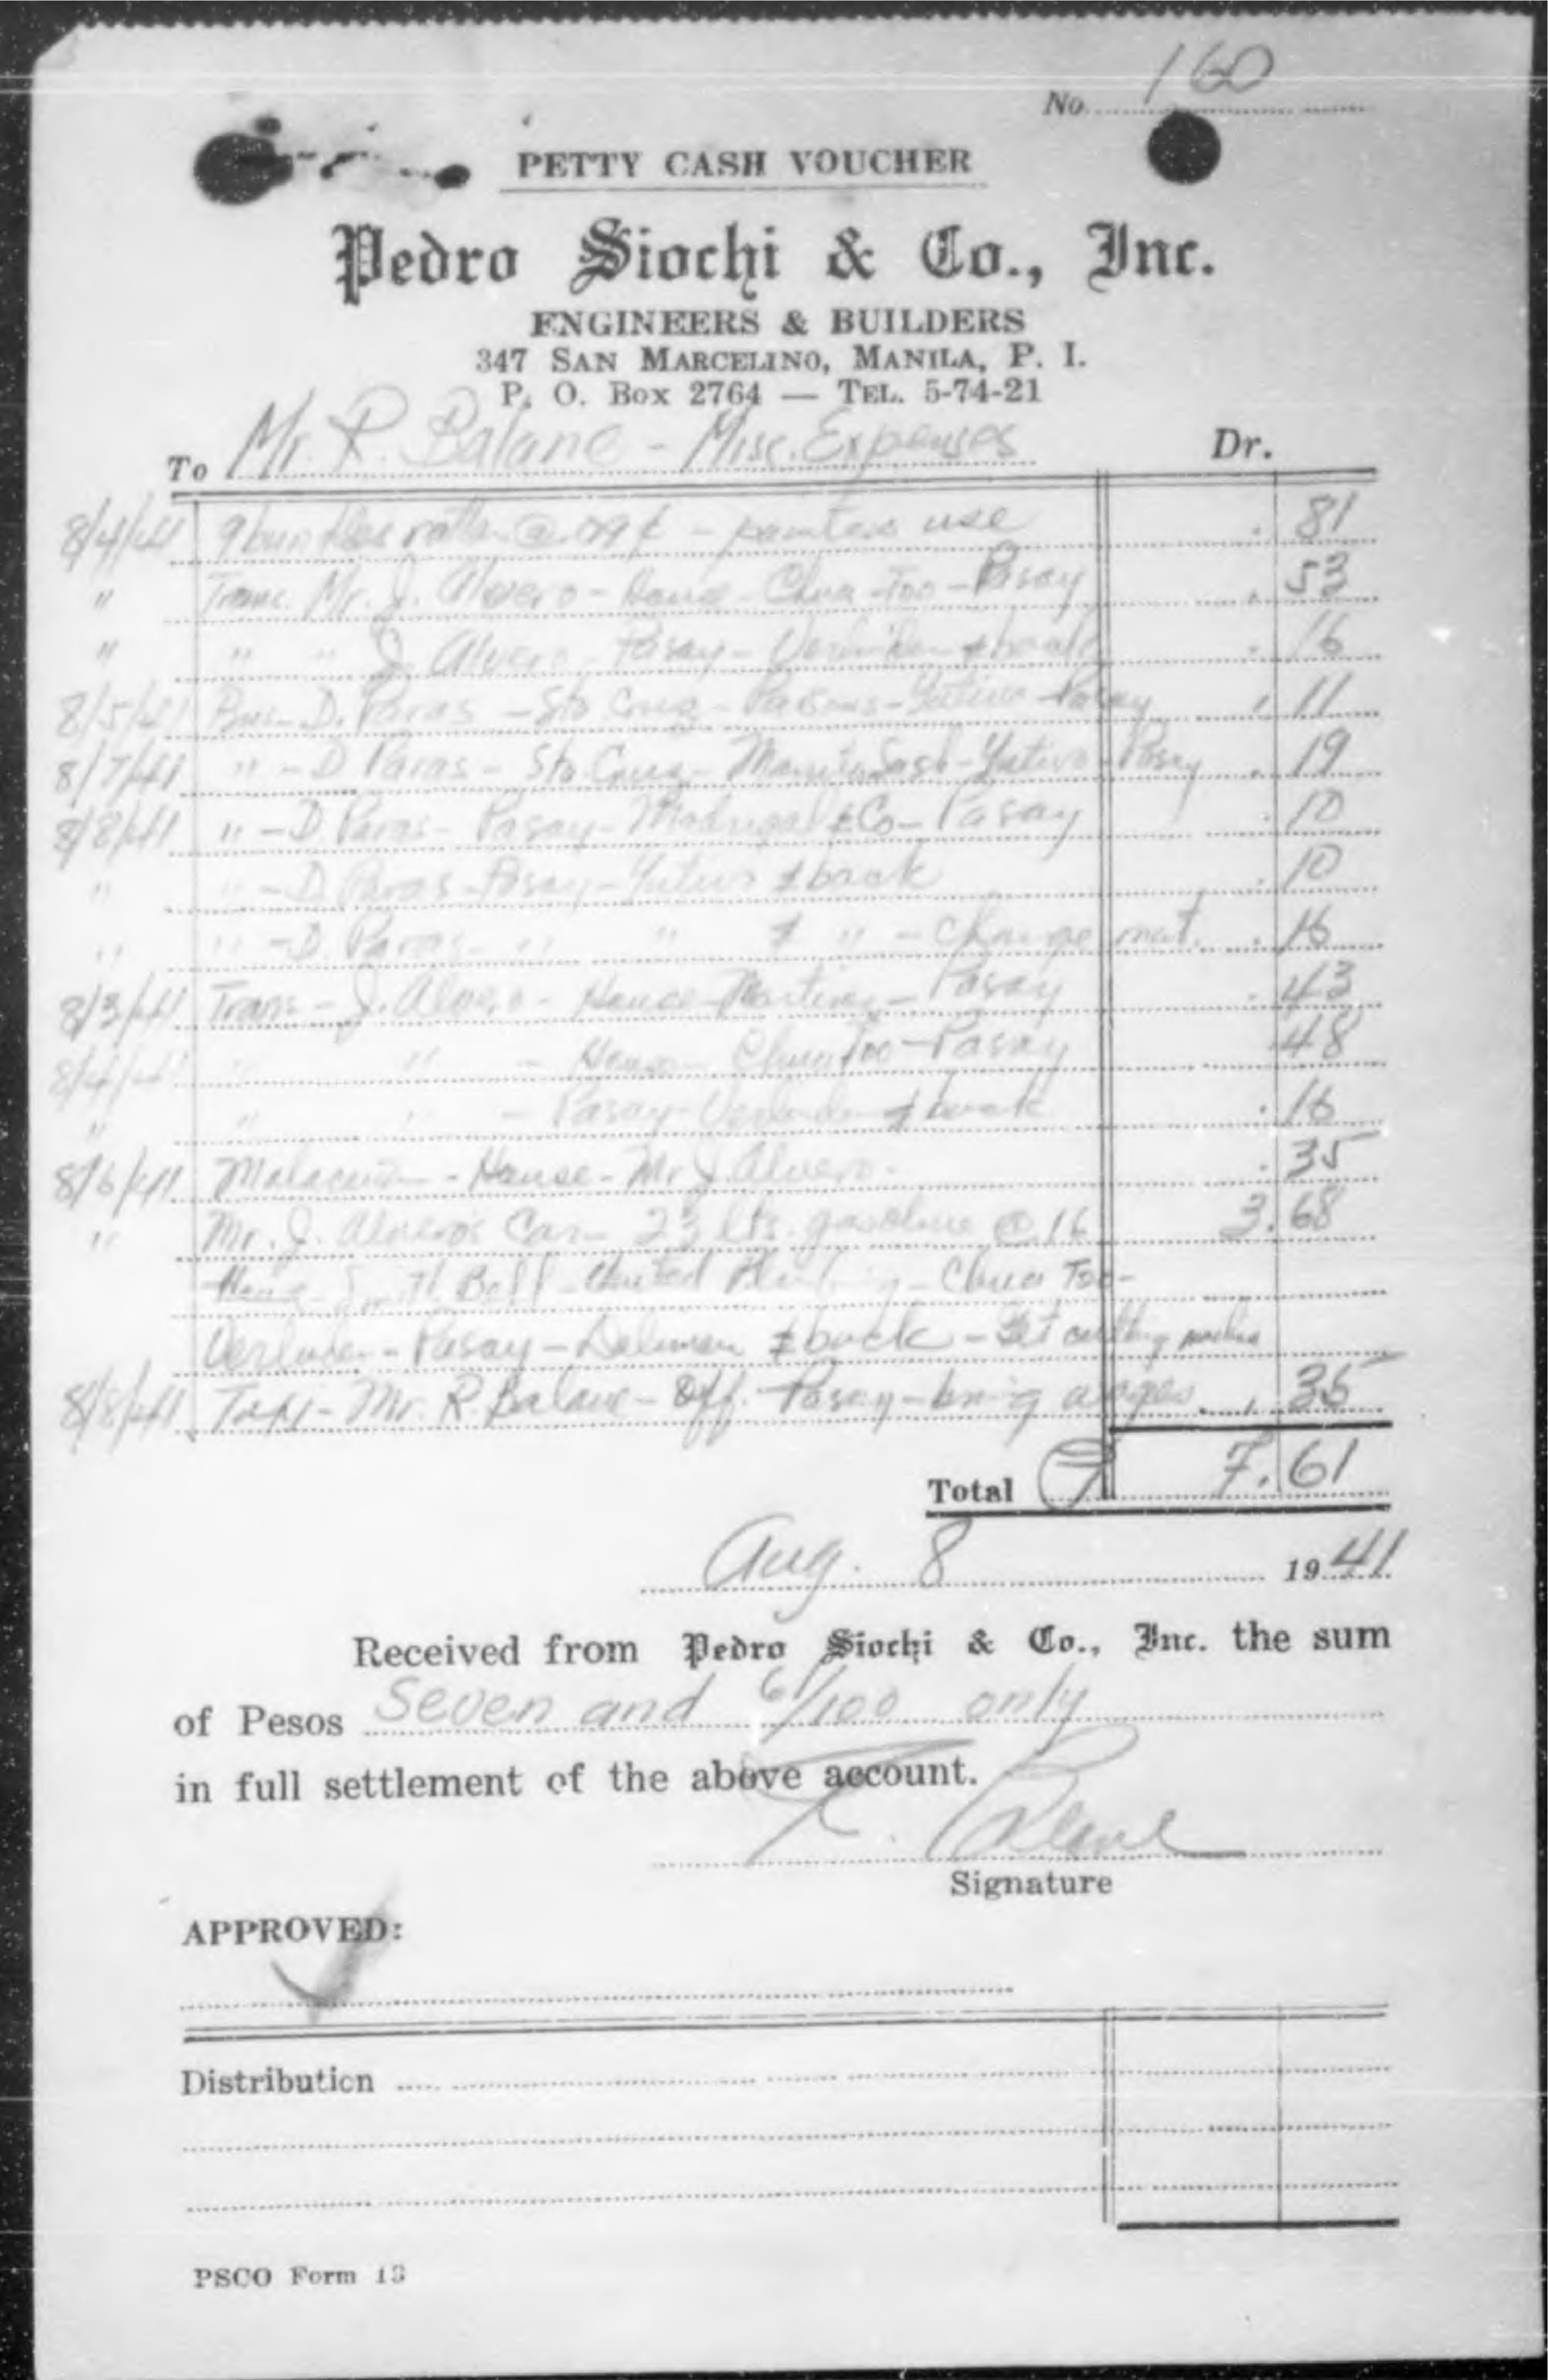 No. 160
PETTY CASH VOUCHER
Pedro Siochi & Co., Inc.
ENGINEERS & BUILDERS
347 SAN MARCELINO, MANILA, P. I.
P. O. Box 2764 — TEL. 5-74-21
To Mr. R. Balane - Misc. Expenses Dr.
8/4/41 9 bundles @ .09¢ - painters use . 81
" Trans. Mr. J. Alvero - House - Chua Too - Pasay . 53
" " " J. Alvero - Pasay - & back . 16
8/5/41 Bus - D. Paras - Sto Cruz - Parsons - Yutivo - Pasay . 11
8/7/41 " - D Paras - Sto. Cruz - Manila Sash - Yutivo - Pasay . 19
8/8/41 " - D. Paras - Pasay - Madrigal & Co - Pasay . 10
" " - D. Paras - Pasay - Yutivo & back . 10
" " - D. Paras - " " & " - Change mat. . 16
8/3/41 Trans - J. Alvero - House - Martinez - Pasay . 43
8/4/41 " " - House - Chua Too - Pasay .48
" " " - Pasay - & back . 16
8/6/41 - House - Mr J. Alvero . 35
" Mr. J. Alvero's Car - 23 lts. gasoline @ .16 3.68
Bell - United - Chua Too -
- Pasay - & back - Get cutting
8/8/41 Taxi - Mr. R Balane - Off. - Pasay - bring wages . 35
Total ₱ 7.61
Aug. 8 1941
Received from Pedro Siochi & Co., Inc. the sum
of Pesos Seven and 61/100 only
in full settlement of the above account.
R. Balane
Signature
APPROVED:
Distribution
PSCO Form 13